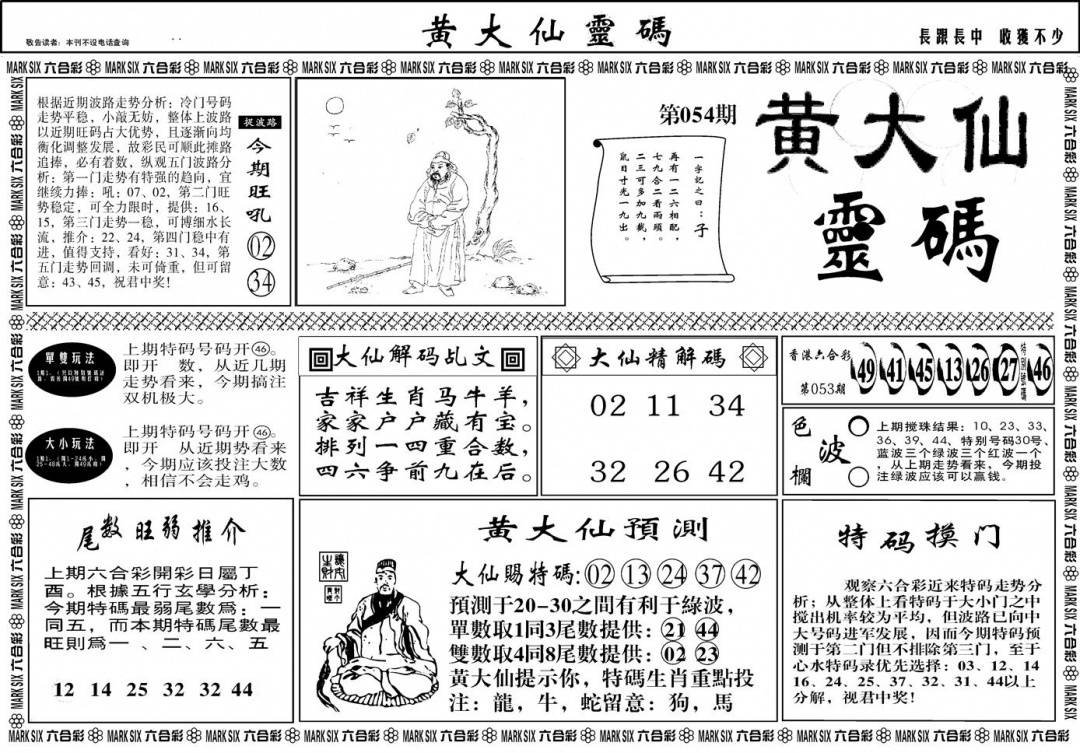 敬告读者：本刊不设电话查询
黄大仙靈碼
長跟長中 收獲不少
MARK SIX 六合彩 MARK SIX 六合彩 MARK SIX 六合彩 MARK SIX 六合彩 MARK SIX 六合彩 MARK SIX 六合彩 MARK SIX 六合彩 MARK SIX 六合彩 MARK SIX 六合彩 MARK SIX 六合彩 MARK SIX 六合彩
根据近期波路走势分析：冷门号码
走势平稳，小敲无妨，整体上波路
以近期旺码占大优势，且逐渐向均
衡化调整发展，故彩民可顺此摊路
追捧，必有着数，纵观五门波路分
析：第一门走势有特强的趋向，宜
继续力捧：吼：07、02，第二门旺
势稳定，可全力限时，提供：16、
15，第三门走势一稳，可博细水长
流，推介：22、24，第四门稳中有
进，值得支持，看好：31、34，第
五门走势回调，未可倚重，但可留
意：43、45，祝君中奖！
捉波路
今期旺吼
02
34
第054期
一字记之曰：子
再有一二六相配，
七九合二看两頭。
二三可多加九截，
鼠目寸光一九出。
黄大仙
靈碼
單雙玩法
上期特码号码开㊻。
即开 数，从近几期
走势看来，今期搞注
双机极大。
大小玩法
上期特码号码开㊻。
即开 从近期势看来
，今期应该投注大数
，相信不会走鸡。
大仙解码乩文
吉祥生肖马牛羊，
家家户户藏有宝。
排列一四重合数，
四六争前九在后。
大仙精解碼
02 11 34
32 26 42
香港六合彩
第053期
49 41 45 13 26 27 特别號碼 46
色波欄
上期搅珠结果：10、23、33、
36、39、44、特别号码30号、
蓝波三个绿波三个红波一个
，从上期走势看来，今期投
注绿波应该可以赢钱。
尾数旺弱推介
上期六合彩開彩日屬丁
酉。根據五行玄學分析：
今期特碼最弱尾數爲：一
同五，而本期特碼尾數最
旺則爲一 、二、六、五
12 14 25 32 32 44
黄大仙預測
大仙賜特碼：02 13 24 37 42
預測于20-30之間有利于綠波，
單數取1同3尾數提供：21 44
雙數取4同8尾數提供：02 23
黄大仙提示你，特碼生肖重點投
注：龍，牛，蛇留意：狗，馬
特码摸门
观察六合彩近来特码走势分
析；从整体上看特码于大小门之中
搅出机率较为平均，但波路已向中
大号码进军发展，因而今期特码预
测于第二门但不排除第三门，至于
心水特码录优先选择：03、12、14
16、24、25、37、32、31、44以上
分解，祝君中奖！
MARK SIX 六合彩 MARK SIX 六合彩 MARK SIX 六合彩 MARK SIX 六合彩 MARK SIX 六合彩 MARK SIX 六合彩 MARK SIX 六合彩 MARK SIX 六合彩 MARK SIX 六合彩 MARK SIX 六合彩 MARK SIX 六合彩